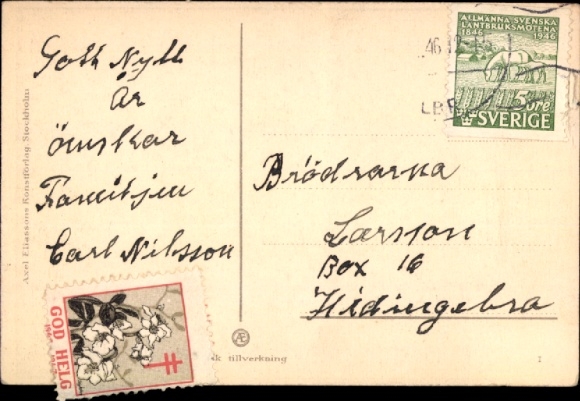 Gott Nytt
År
önskar
Familjen
Carl Nilsson
Bröderna
Larsson
Box 16
Hidingebro
ALLMÄNNA SVENSKA
LANTBRUKSMÖTENA
1846 1946
5 öre
SVERIGE
46
Axel Eliassons Konstförlag, Stockholm
GOD HELG
Æ
sk tillverkning